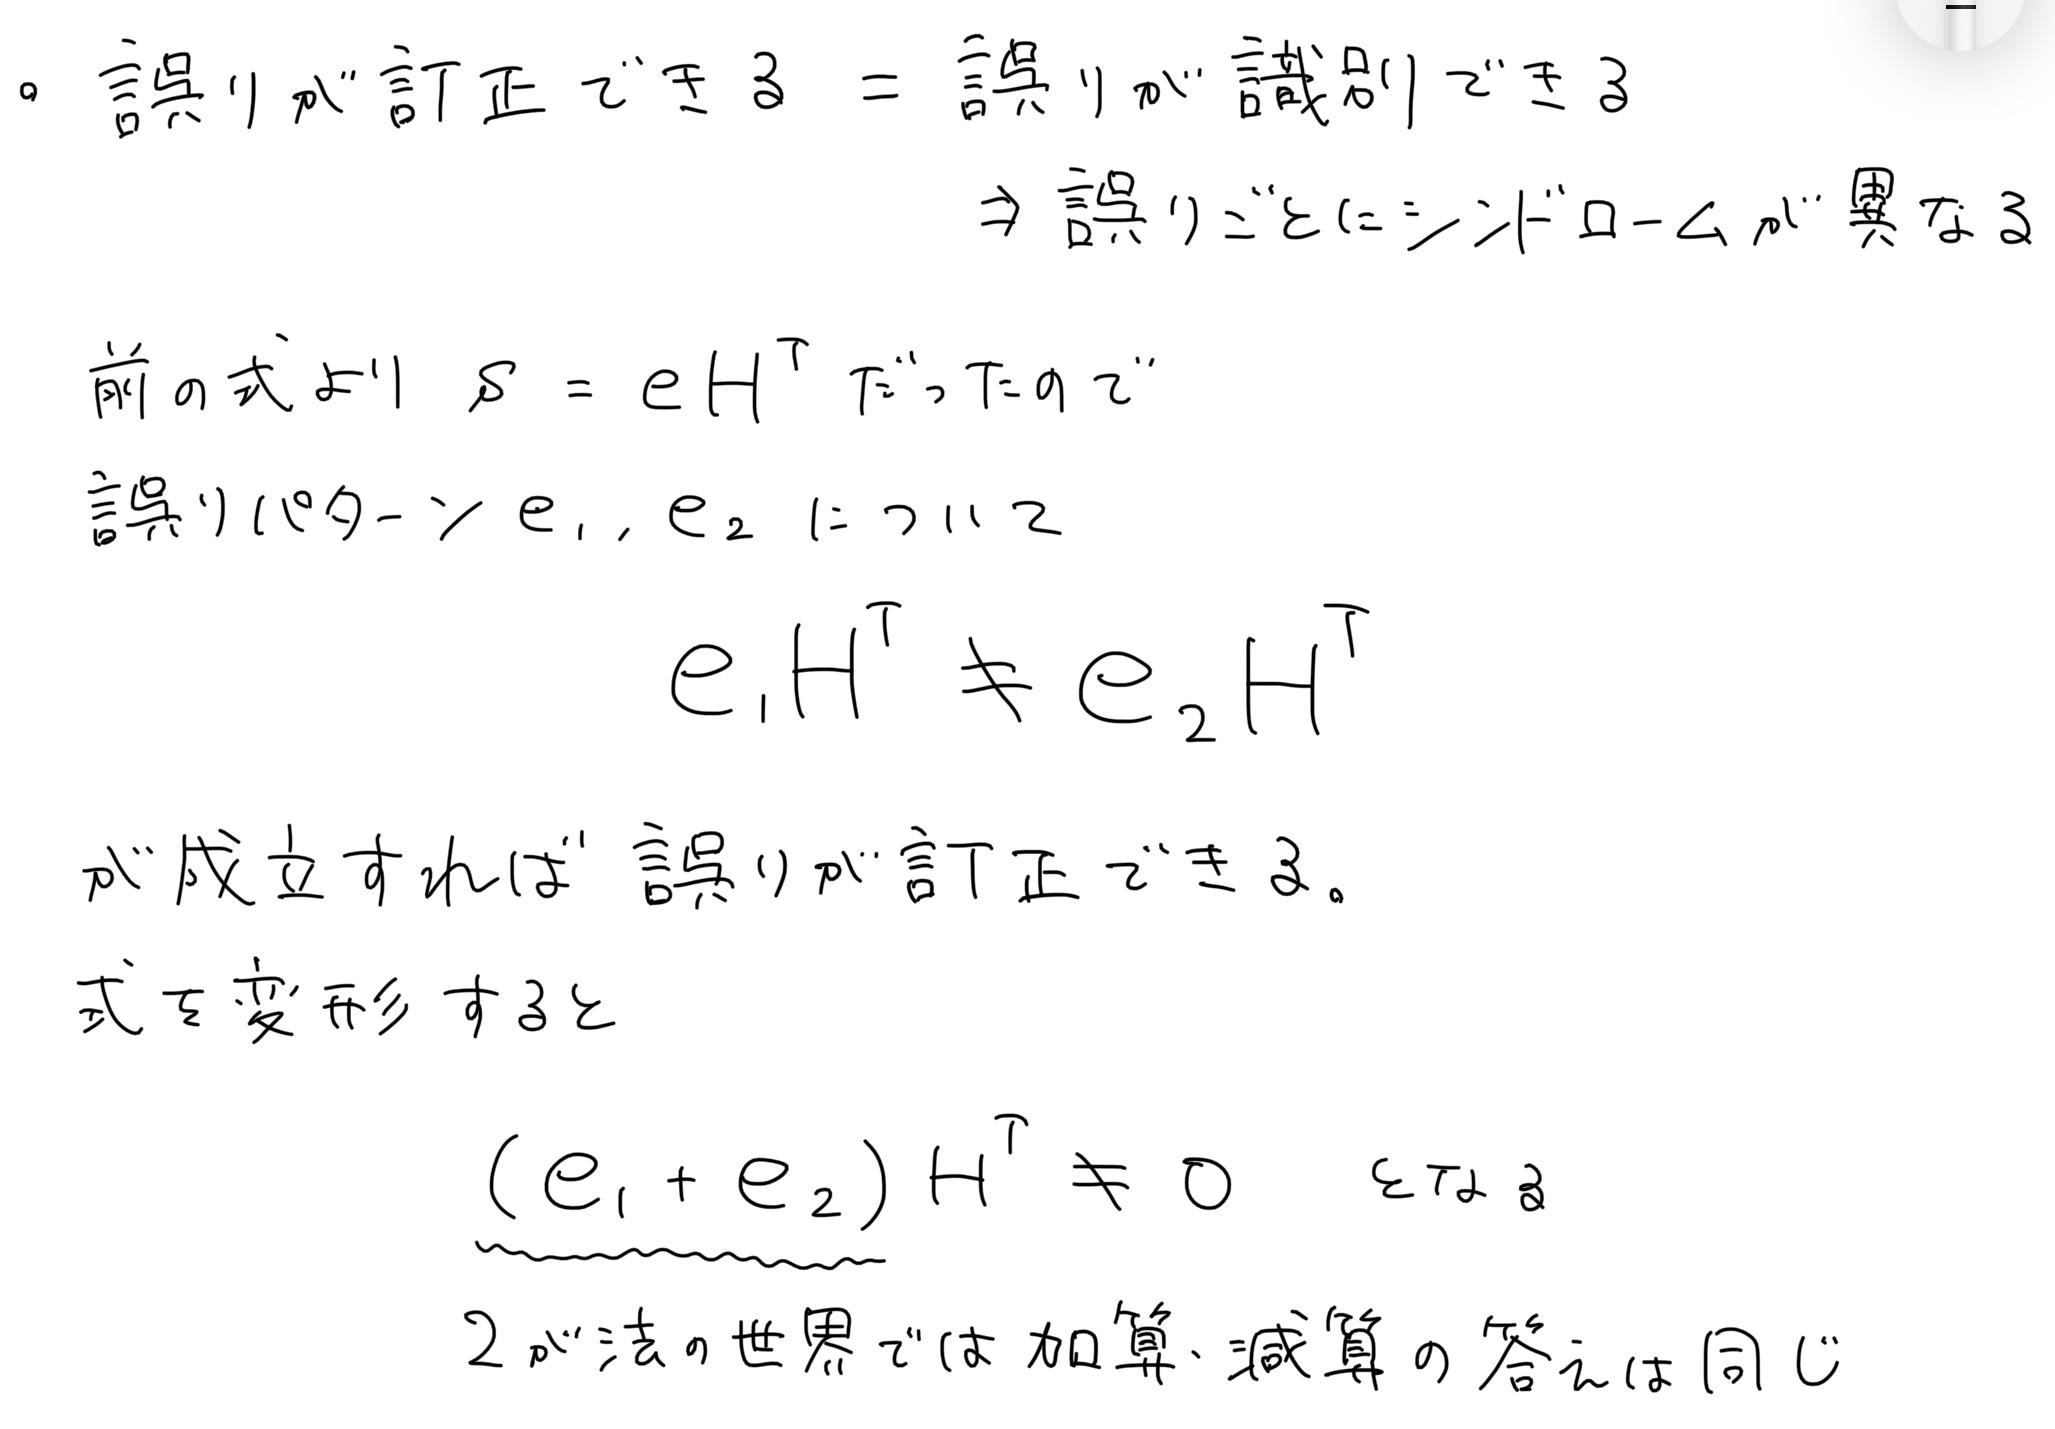 。誤りが訂正できる = 誤りが識別できる
⇒ 誤りごとにシンドロームが異なる
前の式より s = eHᵀ だったので
誤りパターン e₁, e₂ について
e₁Hᵀ ≠ e₂Hᵀ
が成立すれば誤りが訂正できる。
式を変形すると
(e₁ + e₂)Hᵀ ≠ 0 となる
2が法の世界では加算、減算の答えは同じ